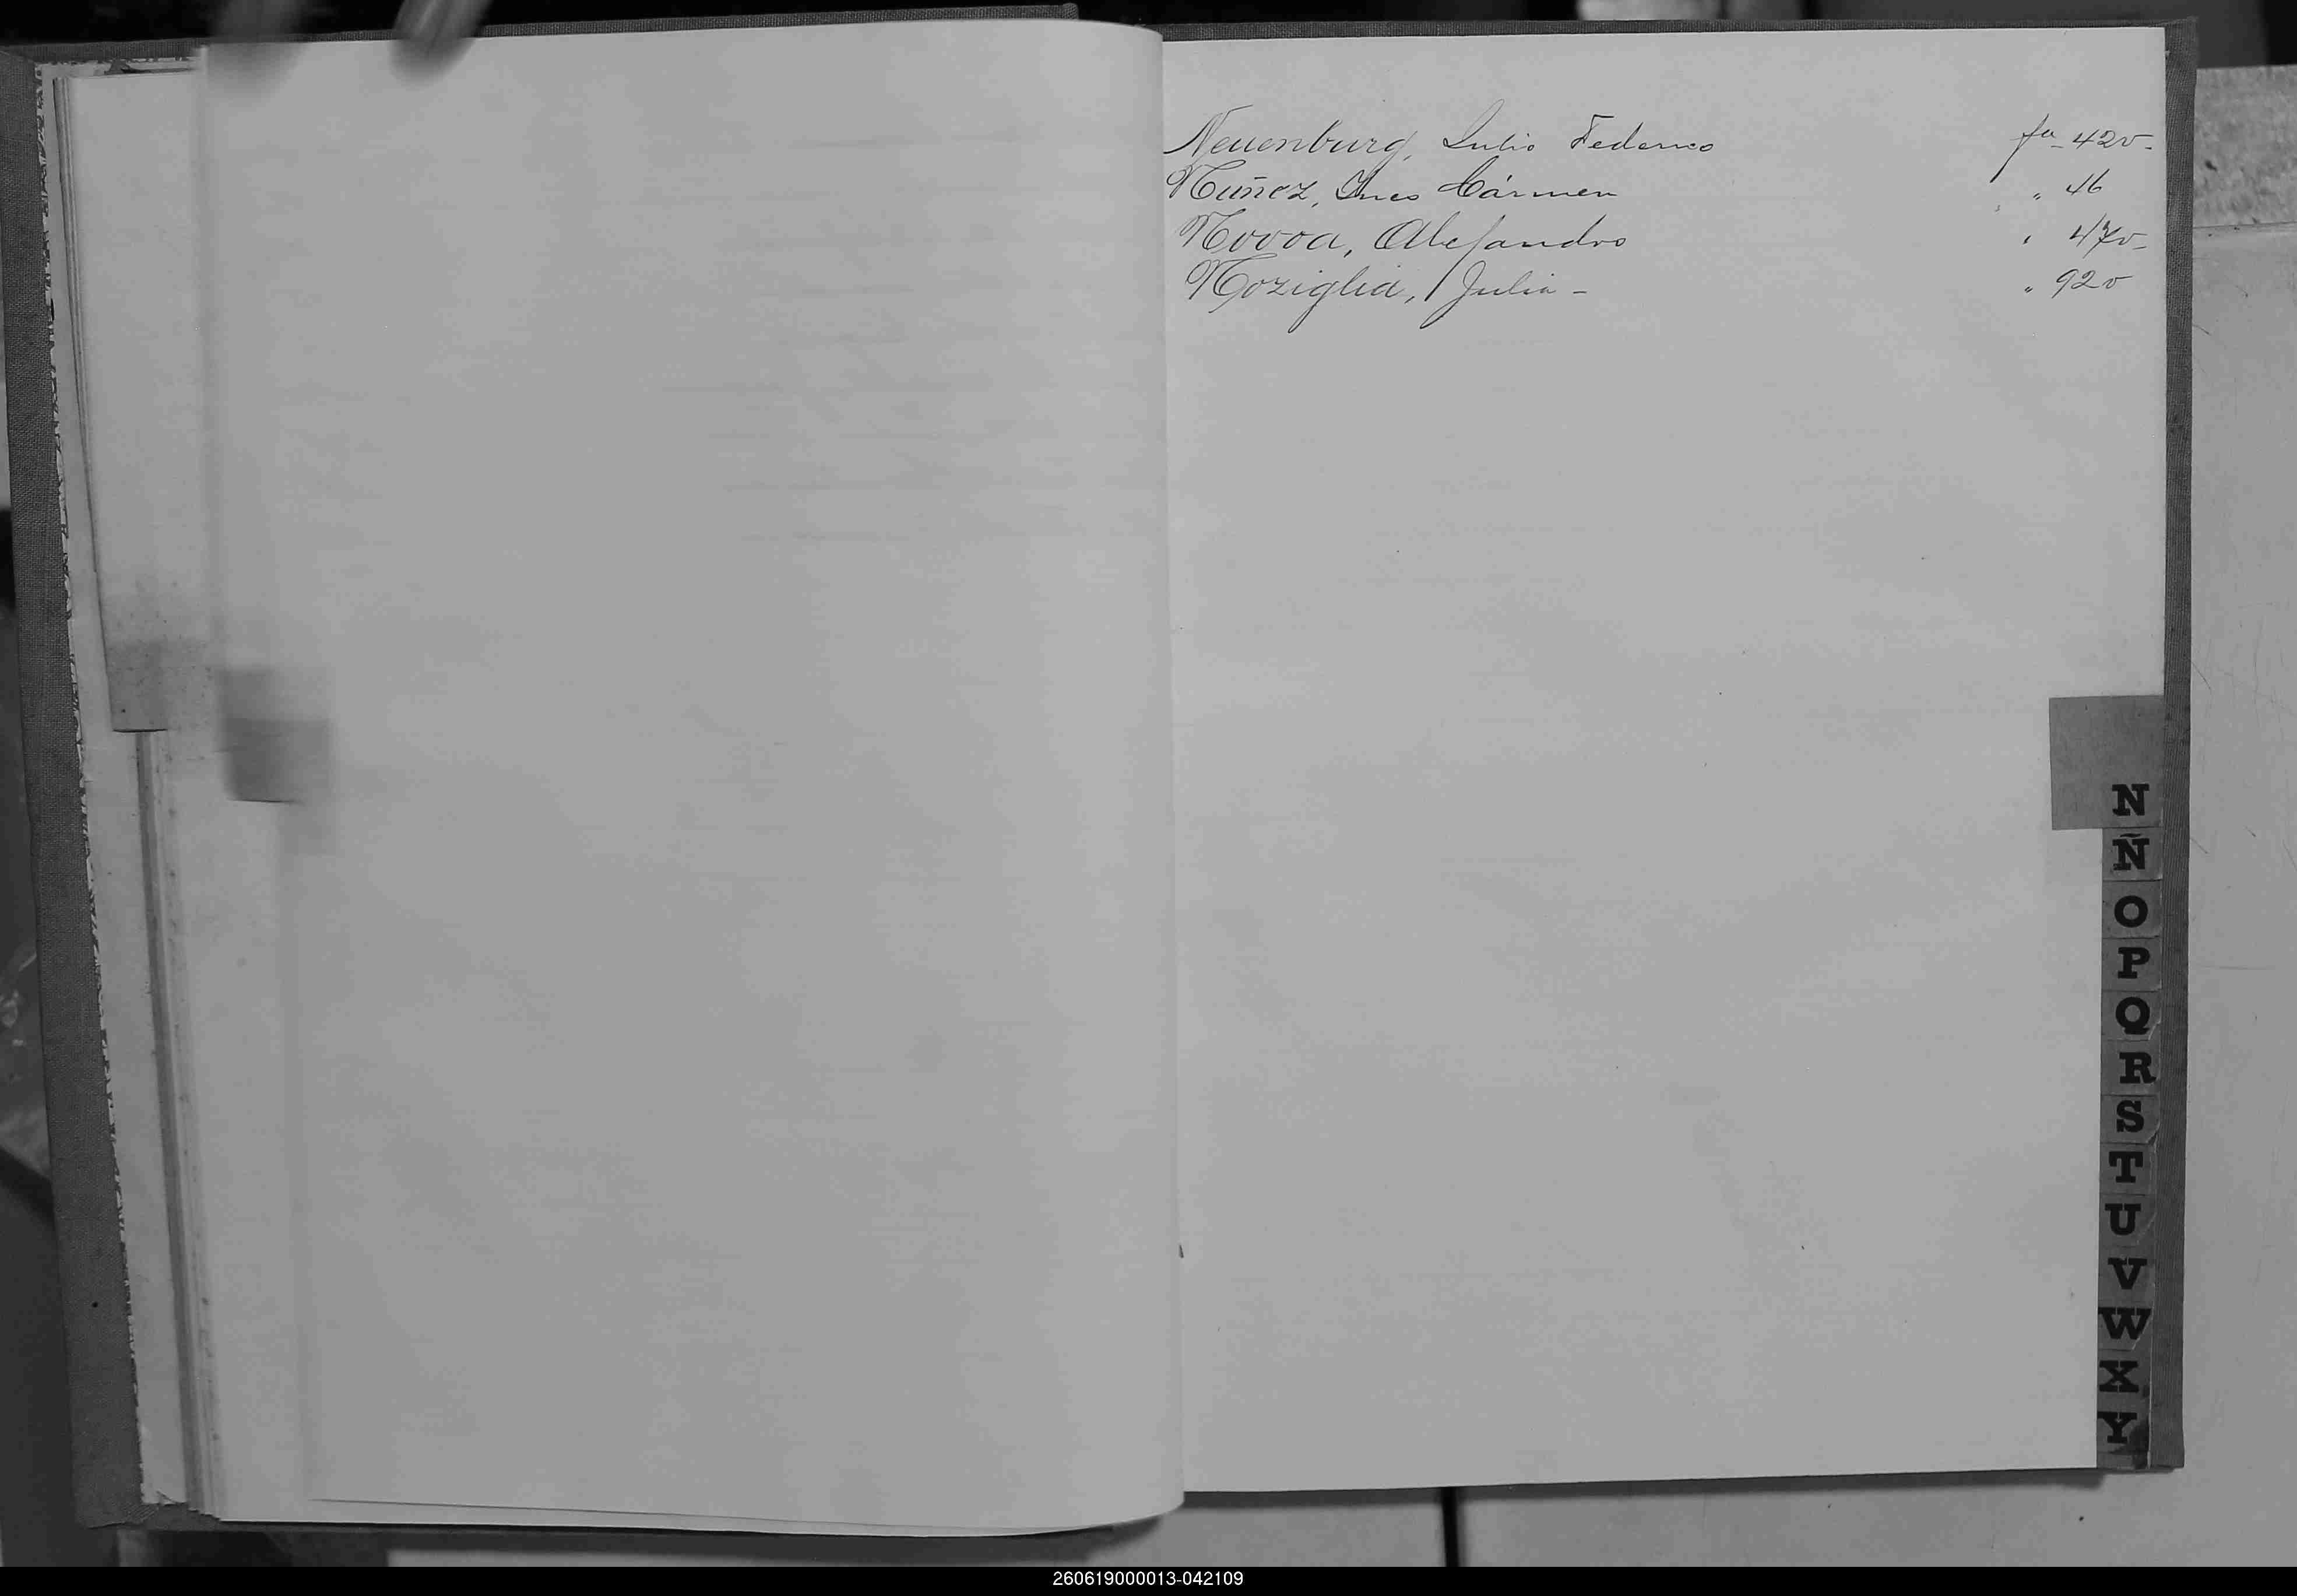 Neuenburg, Julio Federico fa- 42v-
Núñez, Ines Cármen " 46
Novoa, Alejandro " 47v-
Noziglia, Julia - " 92v
N
Ñ
O
P
Q
R
S
T
U
V
W
X
Y
260619000013-042109